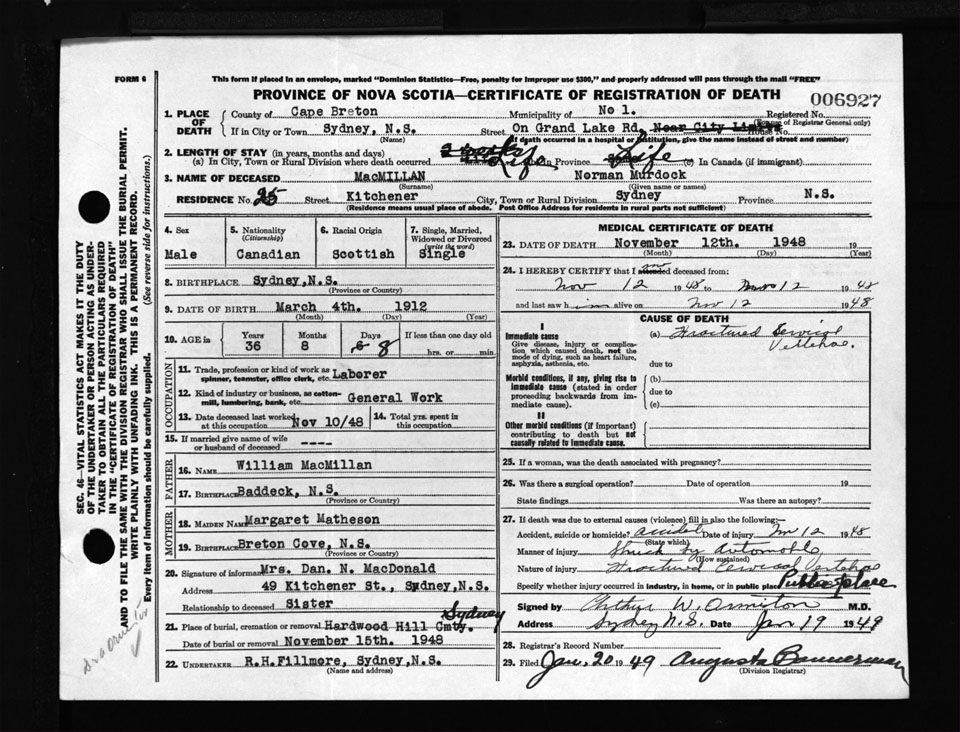 FORM 6
This form if placed in an envelope, marked "Dominion Statistics—Free, penalty for improper use $300," and properly addressed will pass through the mail "FREE"
PROVINCE OF NOVA SCOTIA—CERTIFICATE OF REGISTRATION OF DEATH
006927
1. PLACE OF DEATH { County of Cape Breton Municipality of No 1. Registered No.
(For use of Registrar General only)
If in City or Town Sydney, N.S. Street On Grand Lake Rd, Near City Limits House No.
(Name) (If death occurred in a hospital or institution, give the name instead of street and number)
2. LENGTH OF STAY (in years, months and days)
(a) In City, Town or Rural Division where death occurred Life In Province Life (c) In Canada (if immigrant)
3. NAME OF DECEASED MacMILLAN Norman Murdock
(Surname) (Given name or names)
RESIDENCE No. 25 Street Kitchener City, Town or Rural Division Sydney Province N.S.
(Residence means usual place of abode. Post Office Address for residents in rural parts not sufficient)
4. Sex Male
5. Nationality (Citizenship) Canadian
6. Racial Origin Scottish
7. Single, Married, Widowed or Divorced (write the word) Single
8. BIRTHPLACE Sydney, N.S.
(Province or Country)
9. DATE OF BIRTH March 4th. 1912
(Month) (Day) (Year)
10. AGE in Years 36 Months 8 Days 8 If less than one day old hrs. or min.
OCCUPATION
11. Trade, profession or kind of work as spinner, teamster, office clerk, etc. Laborer
12. Kind of industry or business, as cotton-mill, lumbering, bank, etc. General Work
13. Date deceased last worked at this occupation Nov 10/48
14. Total yrs. spent in this occupation
15. If married give name of wife or husband of deceased ----
FATHER
16. NAME William MacMillan
17. BIRTHPLACE Baddeck, N.S.
(Province or Country)
MOTHER
18. MAIDEN NAME Margaret Matheson
19. BIRTHPLACE Breton Cove, N.S.
(Province or Country)
20. Signature of informant Mrs. Dan. N. MacDonald
Address 49 Kitchener St., Sydney, N.S.
Relationship to deceased Sister
21. Place of burial, cremation or removal Hardwood Hill Cmty. Sydney
Date of burial or removal November 15th. 1948
22. UNDERTAKER R.H.Fillmore, Sydney, N.S.
(Name and address)
MEDICAL CERTIFICATE OF DEATH
23. DATE OF DEATH November 12th. 1948 19
(Month) (Day) (Year)
24. I HEREBY CERTIFY that I attended deceased from:
Nov 12 1948 to Nov 12 1948
and last saw him alive on Nov 12 1948
CAUSE OF DEATH
I
Immediate cause
Give disease, injury or complication which caused death, not the mode of dying, such as heart failure, asphyxia, asthenia, etc.
(a) Fractured Cervical Vertebrae.
due to
Morbid conditions, if any, giving rise to immediate cause (stated in order proceeding backwards from immediate cause).
(b)
due to
(c)
II
Other morbid conditions (if important) contributing to death but not causally related to immediate cause.
25. If a woman, was the death associated with pregnancy?
26. Was there a surgical operation? Date of operation 19
State findings Was there an autopsy?
27. If death was due to external causes (violence) fill in also the following:—
Accident, suicide or homicide? accident Date of injury Nov 12 1948
(State which)
Manner of injury Struck by Automobile
(How sustained)
Nature of injury Fractured Cervical Vertebrae
Specify whether injury occurred in industry, in home, or in public place Public place
Signed by Arthur W. Ormiston M.D.
Address Sydney N.S. Date Jan 19 1949
28. Registrar's Record Number
29. Filed Jan. 20 1949 Augusta Bannerman
(Division Registrar)
SEC. 46—VITAL STATISTICS ACT MAKES IT THE DUTY
OF THE UNDERTAKER OR PERSON ACTING AS UNDERTAKER
TO OBTAIN ALL THE PARTICULARS REQUIRED
IN THE "CERTIFICATE OF REGISTRATION OF DEATH"
AND TO FILE THE SAME WITH THE DIVISION REGISTRAR WHO SHALL ISSUE THE BURIAL PERMIT.
WRITE PLAINLY WITH UNFADING INK. THIS IS A PERMANENT RECORD.
Every item of information should be carefully supplied. (See reverse side for instructions.)